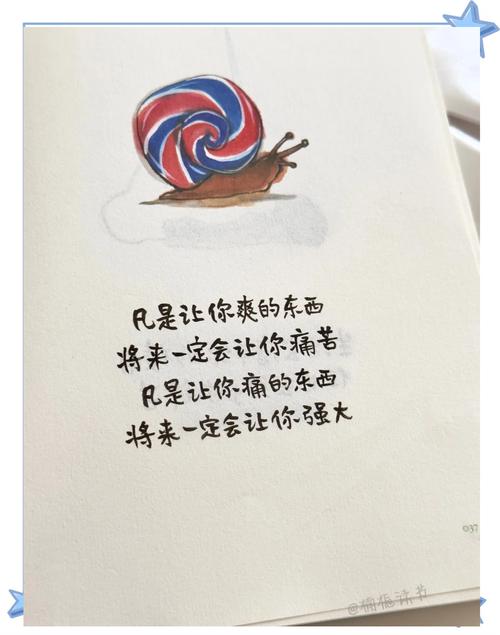 凡是让你爽的东西
将来一定会让你痛苦
凡是让你痛的东西
将来一定会让你强大
037